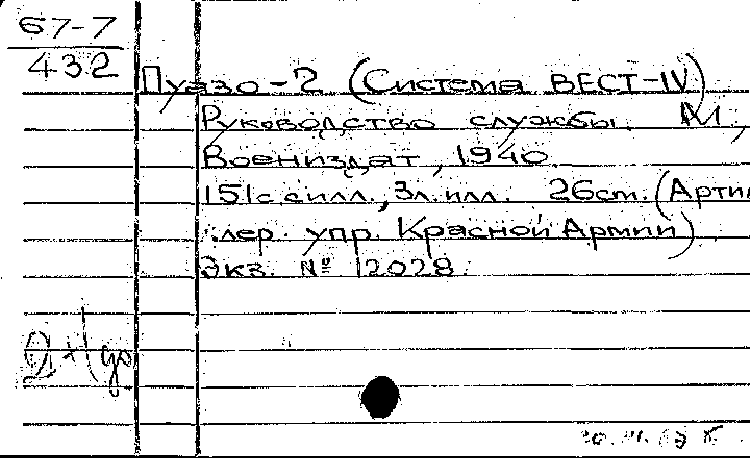 67-7
432
Пуазо-2 (Система ВЕСТ-IV)
Руководство службы. М.,
Воениздат, 1940.
151с. с илл., 3л. илл. 26см. (Арти
лер. упр. Красной Армии)
Экз. № 12028.